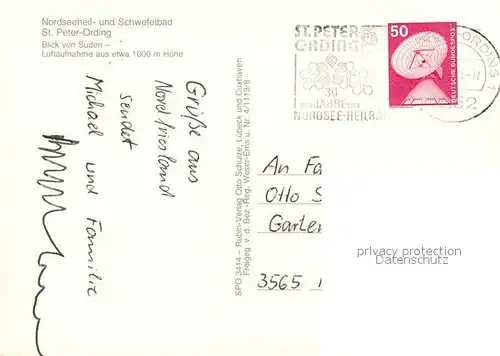 Nordseeheil- und Schwefelbad
St. Peter-Ording
Blick von Süden –
Luftaufnahme aus etwa 1000 m Höhe
Grüße aus
Nordfriesland
sendet
Michael und Familie
SPO 3414 – Rubin-Verlag Otto Schulze, Lübeck und Cuxhaven
Freigeg. v. d. Bez.-Reg. Weser-Ems u. Nr. 4/1113/8
ST. PETER
ORDING
30
JAHRE
NORDSEE-HEILBAD
50
DEUTSCHE BUNDESPOST
An Fa
Otto S
Garten
3565
privacy protection
Datenschutz